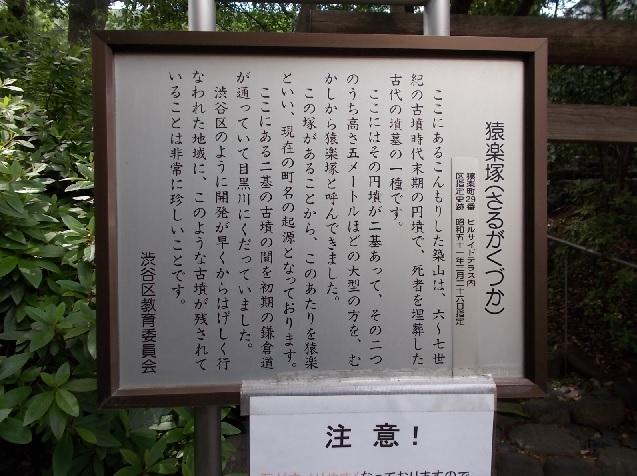 猿楽塚(さるがくづか)
猿楽町29番 ヒルサイドテラス内
区指定史跡 昭和五十一年二月二十六日指定
ここにあるこんもりした築山は、六〜七世
紀の古墳時代末期の円墳で、死者を埋葬した
古代の墳墓の一種です。
ここにはその円墳が二基あって、その二つ
のうち高さ五メートルほどの大型の方を、む
かしから猿楽塚と呼んできました。
この塚があることから、このあたりを猿楽
といい、現在の町名の起源となっております。
ここにある二基の古墳の間を初期の鎌倉道
が通っていて目黒川にくだっていました。
渋谷区のように開発が早くからはげしく行
なわれた地域に、このような古墳が残されて
いることは非常に珍しいことです。
渋谷区教育委員会
注 意!
なっておりますので